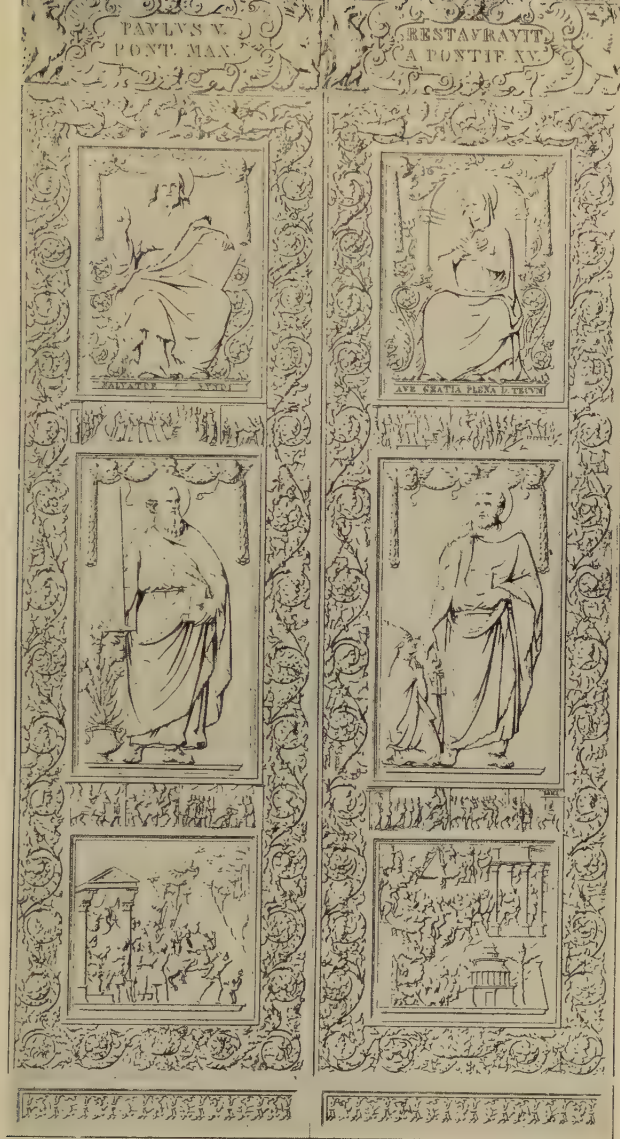 PAVLVS V.
PONT. MAX.
RESTAVRAVIT
A PONTIF. XV.
SALVATOR MVNDI
AVE GRATIA PLENA D. TECVM